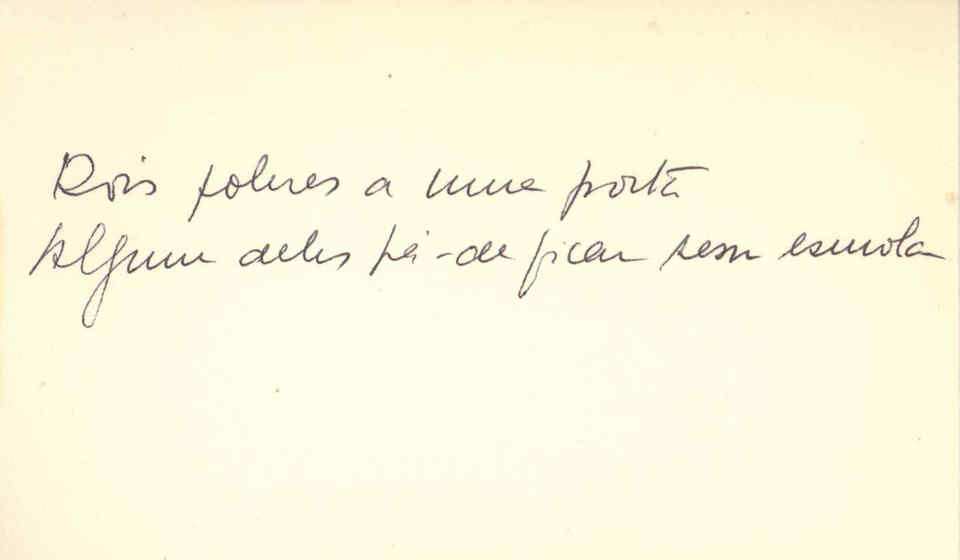 Dois pobres a uma porta
Algum deles há-de ficar sem esmola